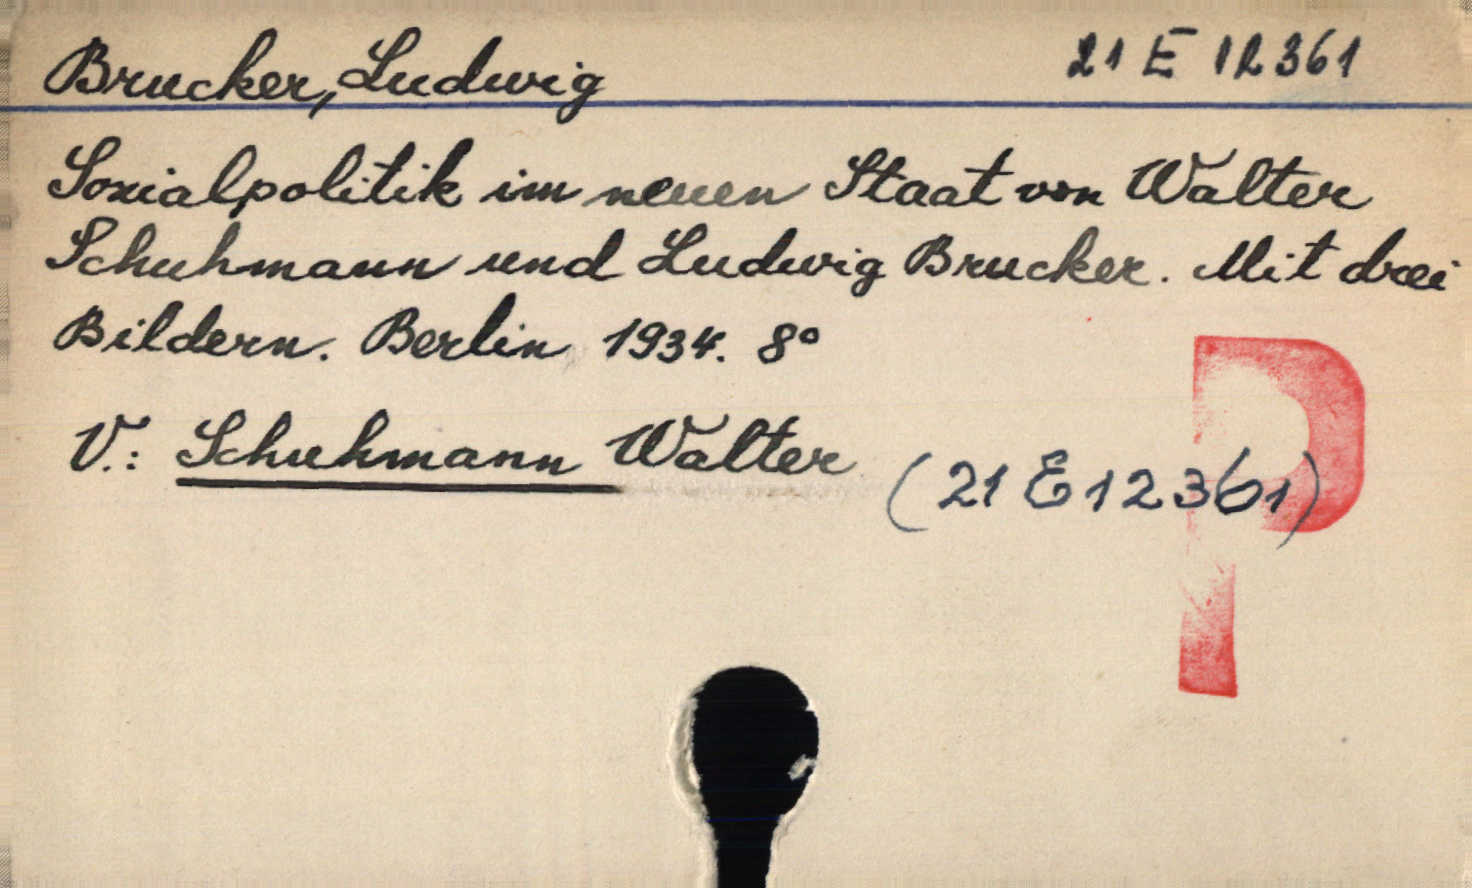 Brucker, Ludwig 21 E 12361
Sozialpolitik im neuen Staat von Walter
Schuhmann und Ludwig Brucker. Mit drei
Bildern. Berlin 1934. 8°
V.: Schuhmann Walter (21 E 12361)
P